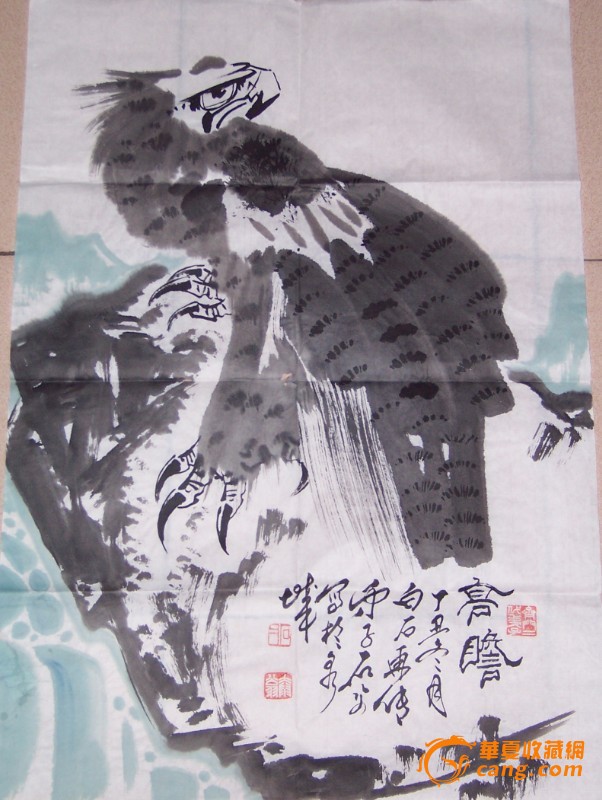 高瞻
丁丑冬之月
白石再传
弟子石
写于泉
城
華夏收藏網
cang.com